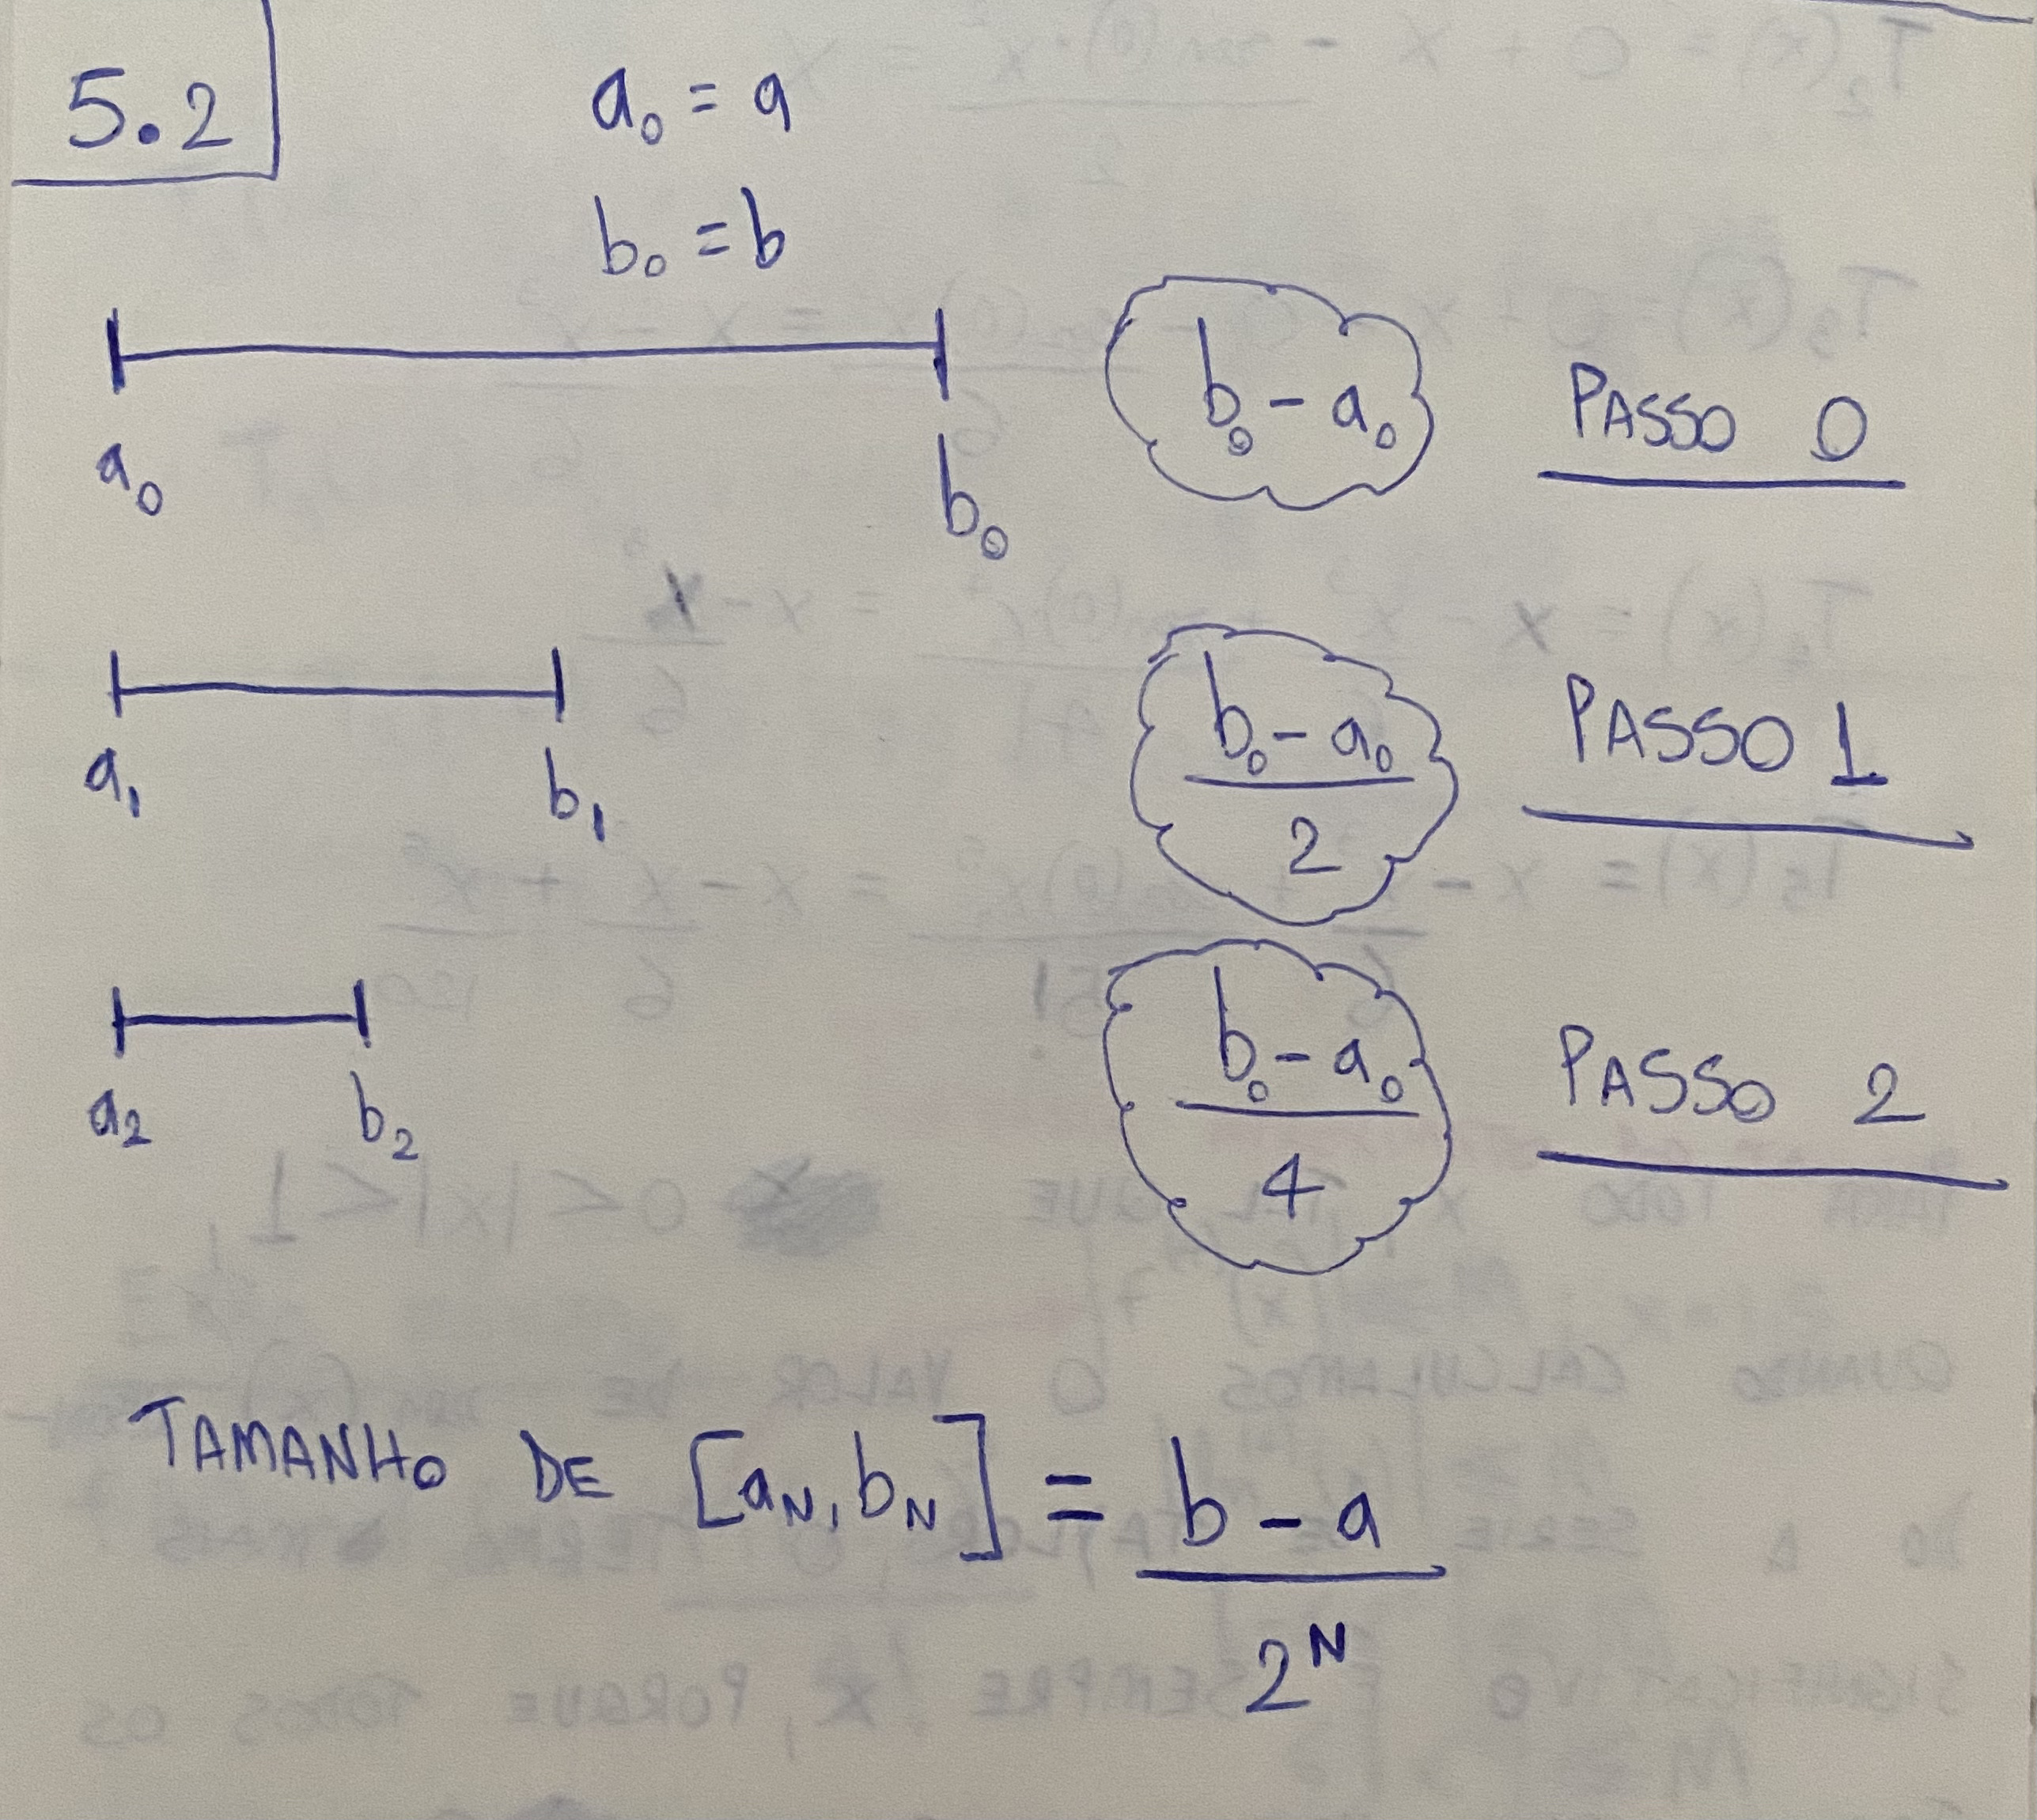 5.2
a₀ = a
b₀ = b
a₀ b₀ b₀ - a₀ PASSO 0
a₁ b₁ (b₀ - a₀)/2 PASSO 1
a₂ b₂ (b₀ - a₀)/4 PASSO 2
TAMANHO DE [a_N, b_N] = (b - a)/2^N